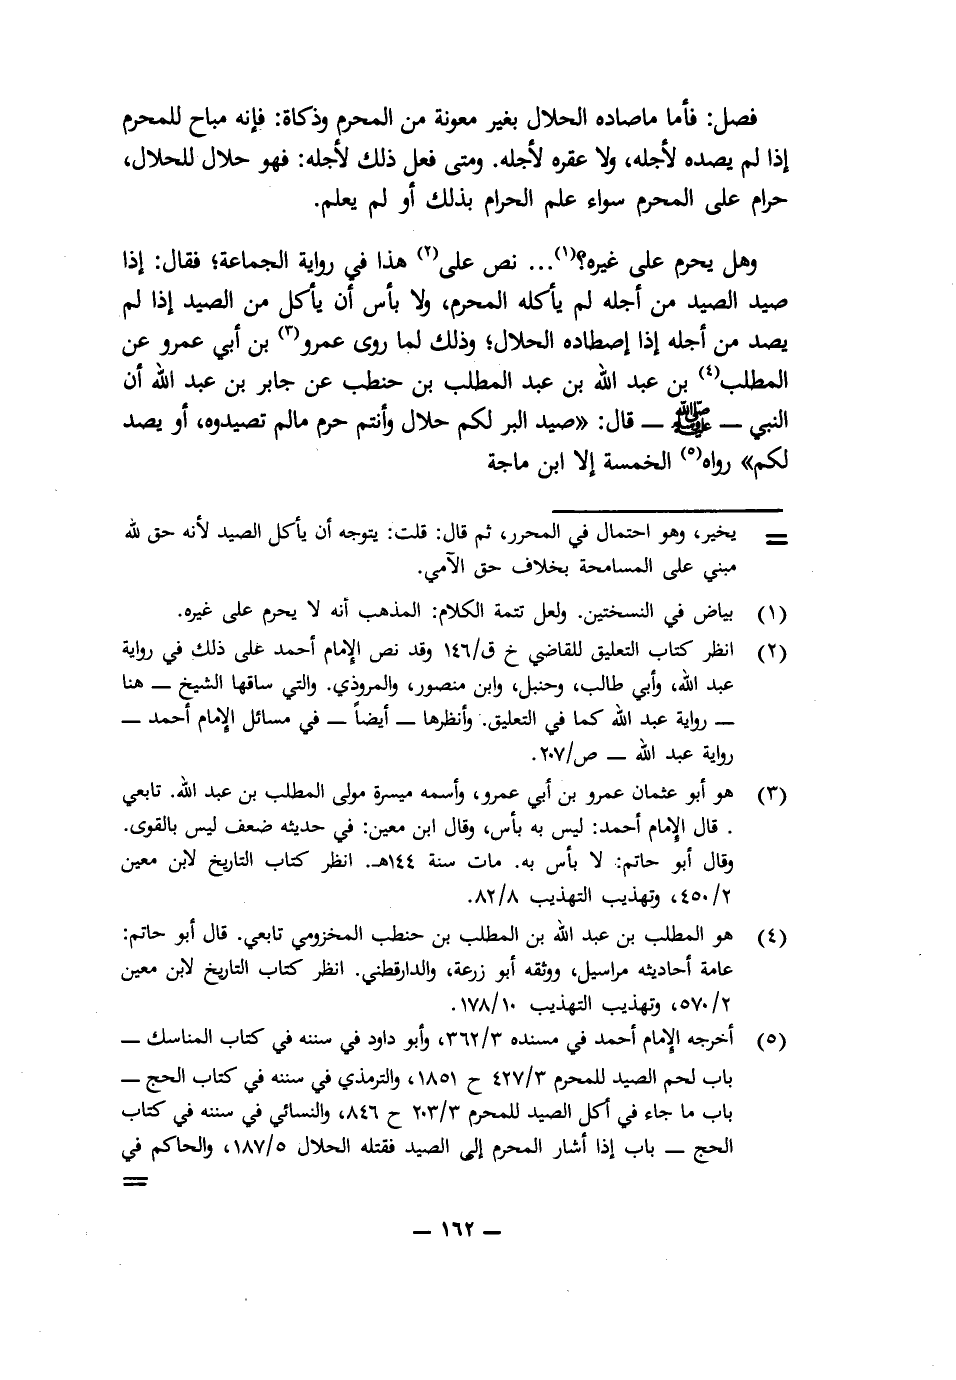 فصل: فأما ماصاده الحلال بغير معونة من المحرم وذكاة: فإنه مباح للمحرم
إذا لم يصده لأجله، ولا عقره لأجله. ومتى فعل ذلك لأجله: فهو حلال للحلال،
حرام على المحرم سواء علم الحرام بذلك أو لم يعلم.
وهل يحرم على غيره؟(١)... نص على(٢) هذا في رواية الجماعة؛ فقال: إذا
صيد الصيد من أجله لم يأكله المحرم، ولا بأس أن يأكل من الصيد إذا لم
يصد من أجله إذا إصطاده الحلال؛ وذلك لما روى عمرو(٣) بن أبي عمرو عن
المطلب(٤) بن عبد الله بن عبد المطلب بن حنطب عن جابر بن عبد الله أن
النبي — ﷺ — قال: «صيد البر لكم حلال وأنتم حرم مالم تصيدوه، أو يصد
لكم» رواه(٥) الخمسة إلا ابن ماجة
= يخير، وهو احتمال في المحرر، ثم قال: قلت: يتوجه أن يأكل الصيد لأنه حق لله
مبني على المسامحة بخلاف حق الآمي.
(١) بياض في النسختين. ولعل تتمة الكلام: المذهب أنه لا يحرم على غيره.
(٢) انظر كتاب التعليق للقاضي خ ق/١٤٦ وقد نص الإمام أحمد على ذلك في رواية
عبد الله، وأبي طالب، وحنبل، وابن منصور، والمروذي. والتي ساقها الشيخ — هنا
— رواية عبد الله كما في التعليق. وأنظرها — أيضاً — في مسائل الإمام أحمد —
رواية عبد الله — ص/٢٠٧.
(٣) هو أبو عثمان عمرو بن أبي عمرو، وأسمه ميسرة مولى المطلب بن عبد الله. تابعي
. قال الإمام أحمد: ليس به بأس، وقال ابن معين: في حديثه ضعف ليس بالقوى.
وقال أبو حاتم: لا بأس به. مات سنة ١٤٤هـ. انظر كتاب التاريخ لابن معين
٤٥٠/٢، وتهذيب التهذيب ٨٢/٨.
(٤) هو المطلب بن عبد الله بن المطلب بن حنطب المخزومي تابعي. قال أبو حاتم:
عامة أحاديثه مراسيل، ووثقه أبو زرعة، والدارقطني. انظر كتاب التاريخ لابن معين
٥٧٠/٢، وتهذيب التهذيب ١٧٨/١٠.
(٥) أخرجه الإمام أحمد في مسنده ٣٦٢/٣، وأبو داود في سننه في كتاب المناسك —
باب لحم الصيد للمحرم ٤٢٧/٣ ح ١٨٥١، والترمذي في سننه في كتاب الحج —
باب ما جاء في أكل الصيد للمحرم ٢٠٣/٣ ح ٨٤٦، والنسائي في سننه في كتاب
الحج — باب إذا أشار المحرم إلى الصيد فقتله الحلال ١٨٧/٥، والحاكم في
=
— ١٦٢ —